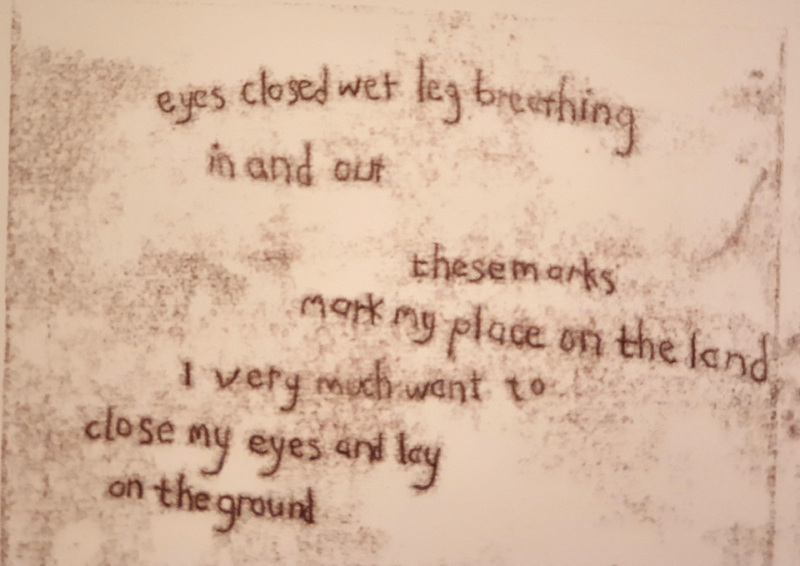 eyes closed wet leg breathing
in and out
these marks
mark my place on the land
I very much want to
close my eyes and lay
on the ground